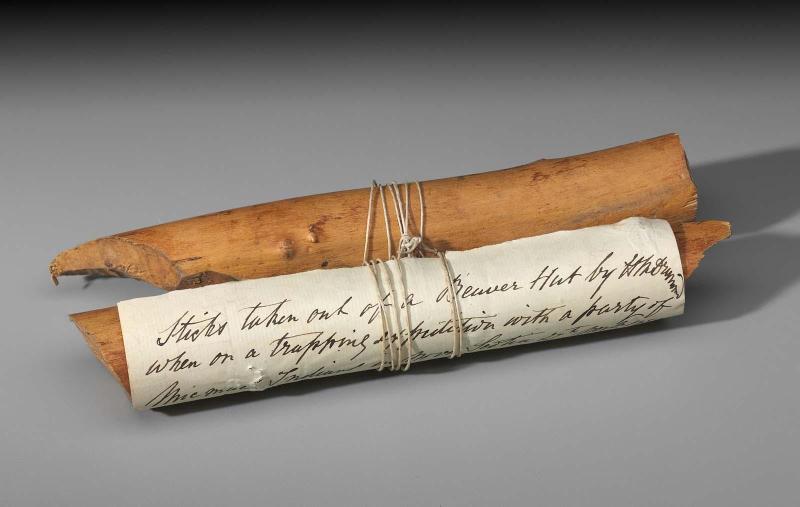 Sticks taken out of a Beaver Hut by
when on a trapping expedition with a party of
Micmac Indians